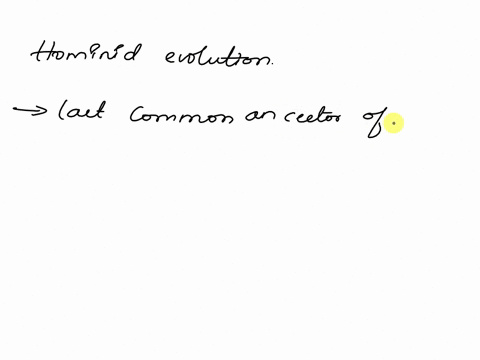 Hominid evolution.
→ last common ancestor of